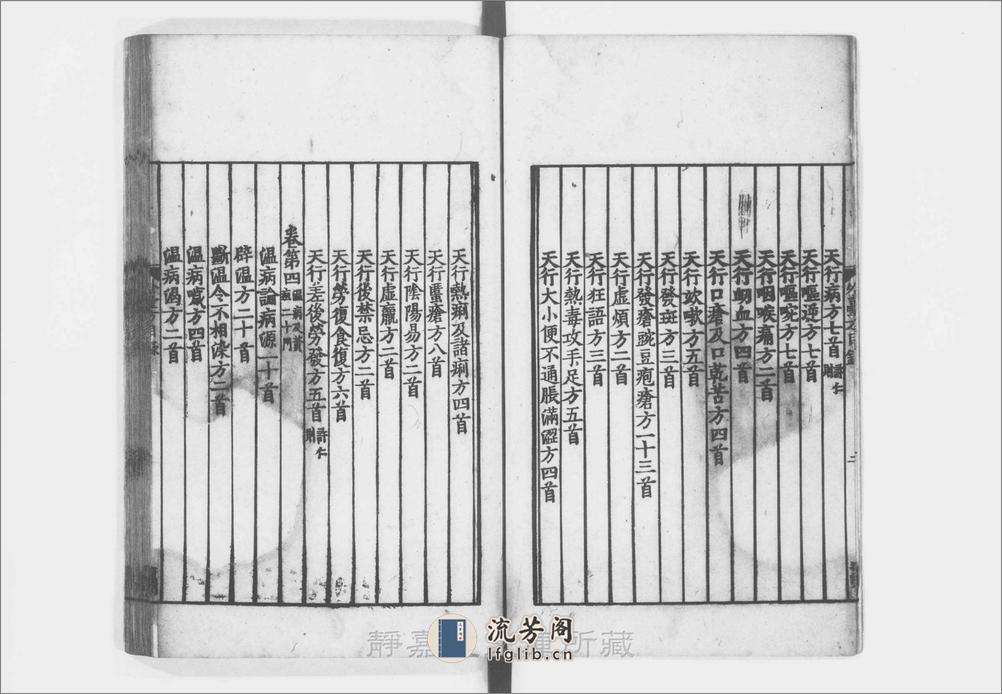 天行病方七首許仁則
天行嘔逆方七首
天行嘔啘方七首
天行咽喉痛方二首
天行衂血方四首
天行口瘡及口乾苦方四首
天行欬嗽方五首
天行發斑方三首
天行發瘡豌豆皰瘡方一十三首
天行虛煩方二首
天行狂語方三首
天行熱毒攻手足方五首
天行大小便不通脹滿澀方四首
天行熱痢及諸痢方四首
天行䘌瘡方八首
天行陰陽易方二首
天行虛羸方二首
天行後禁忌方二首
天行勞復食復方六首
天行差後勞發方五首許仁則
卷第四溫病及黃疸二十門
溫病論病源一十首
辟溫方二十首
斷溫令不相染方二首
溫病噦方四首
溫病渴方二首
靜嘉
所藏
流芳阁
lfglib.cn